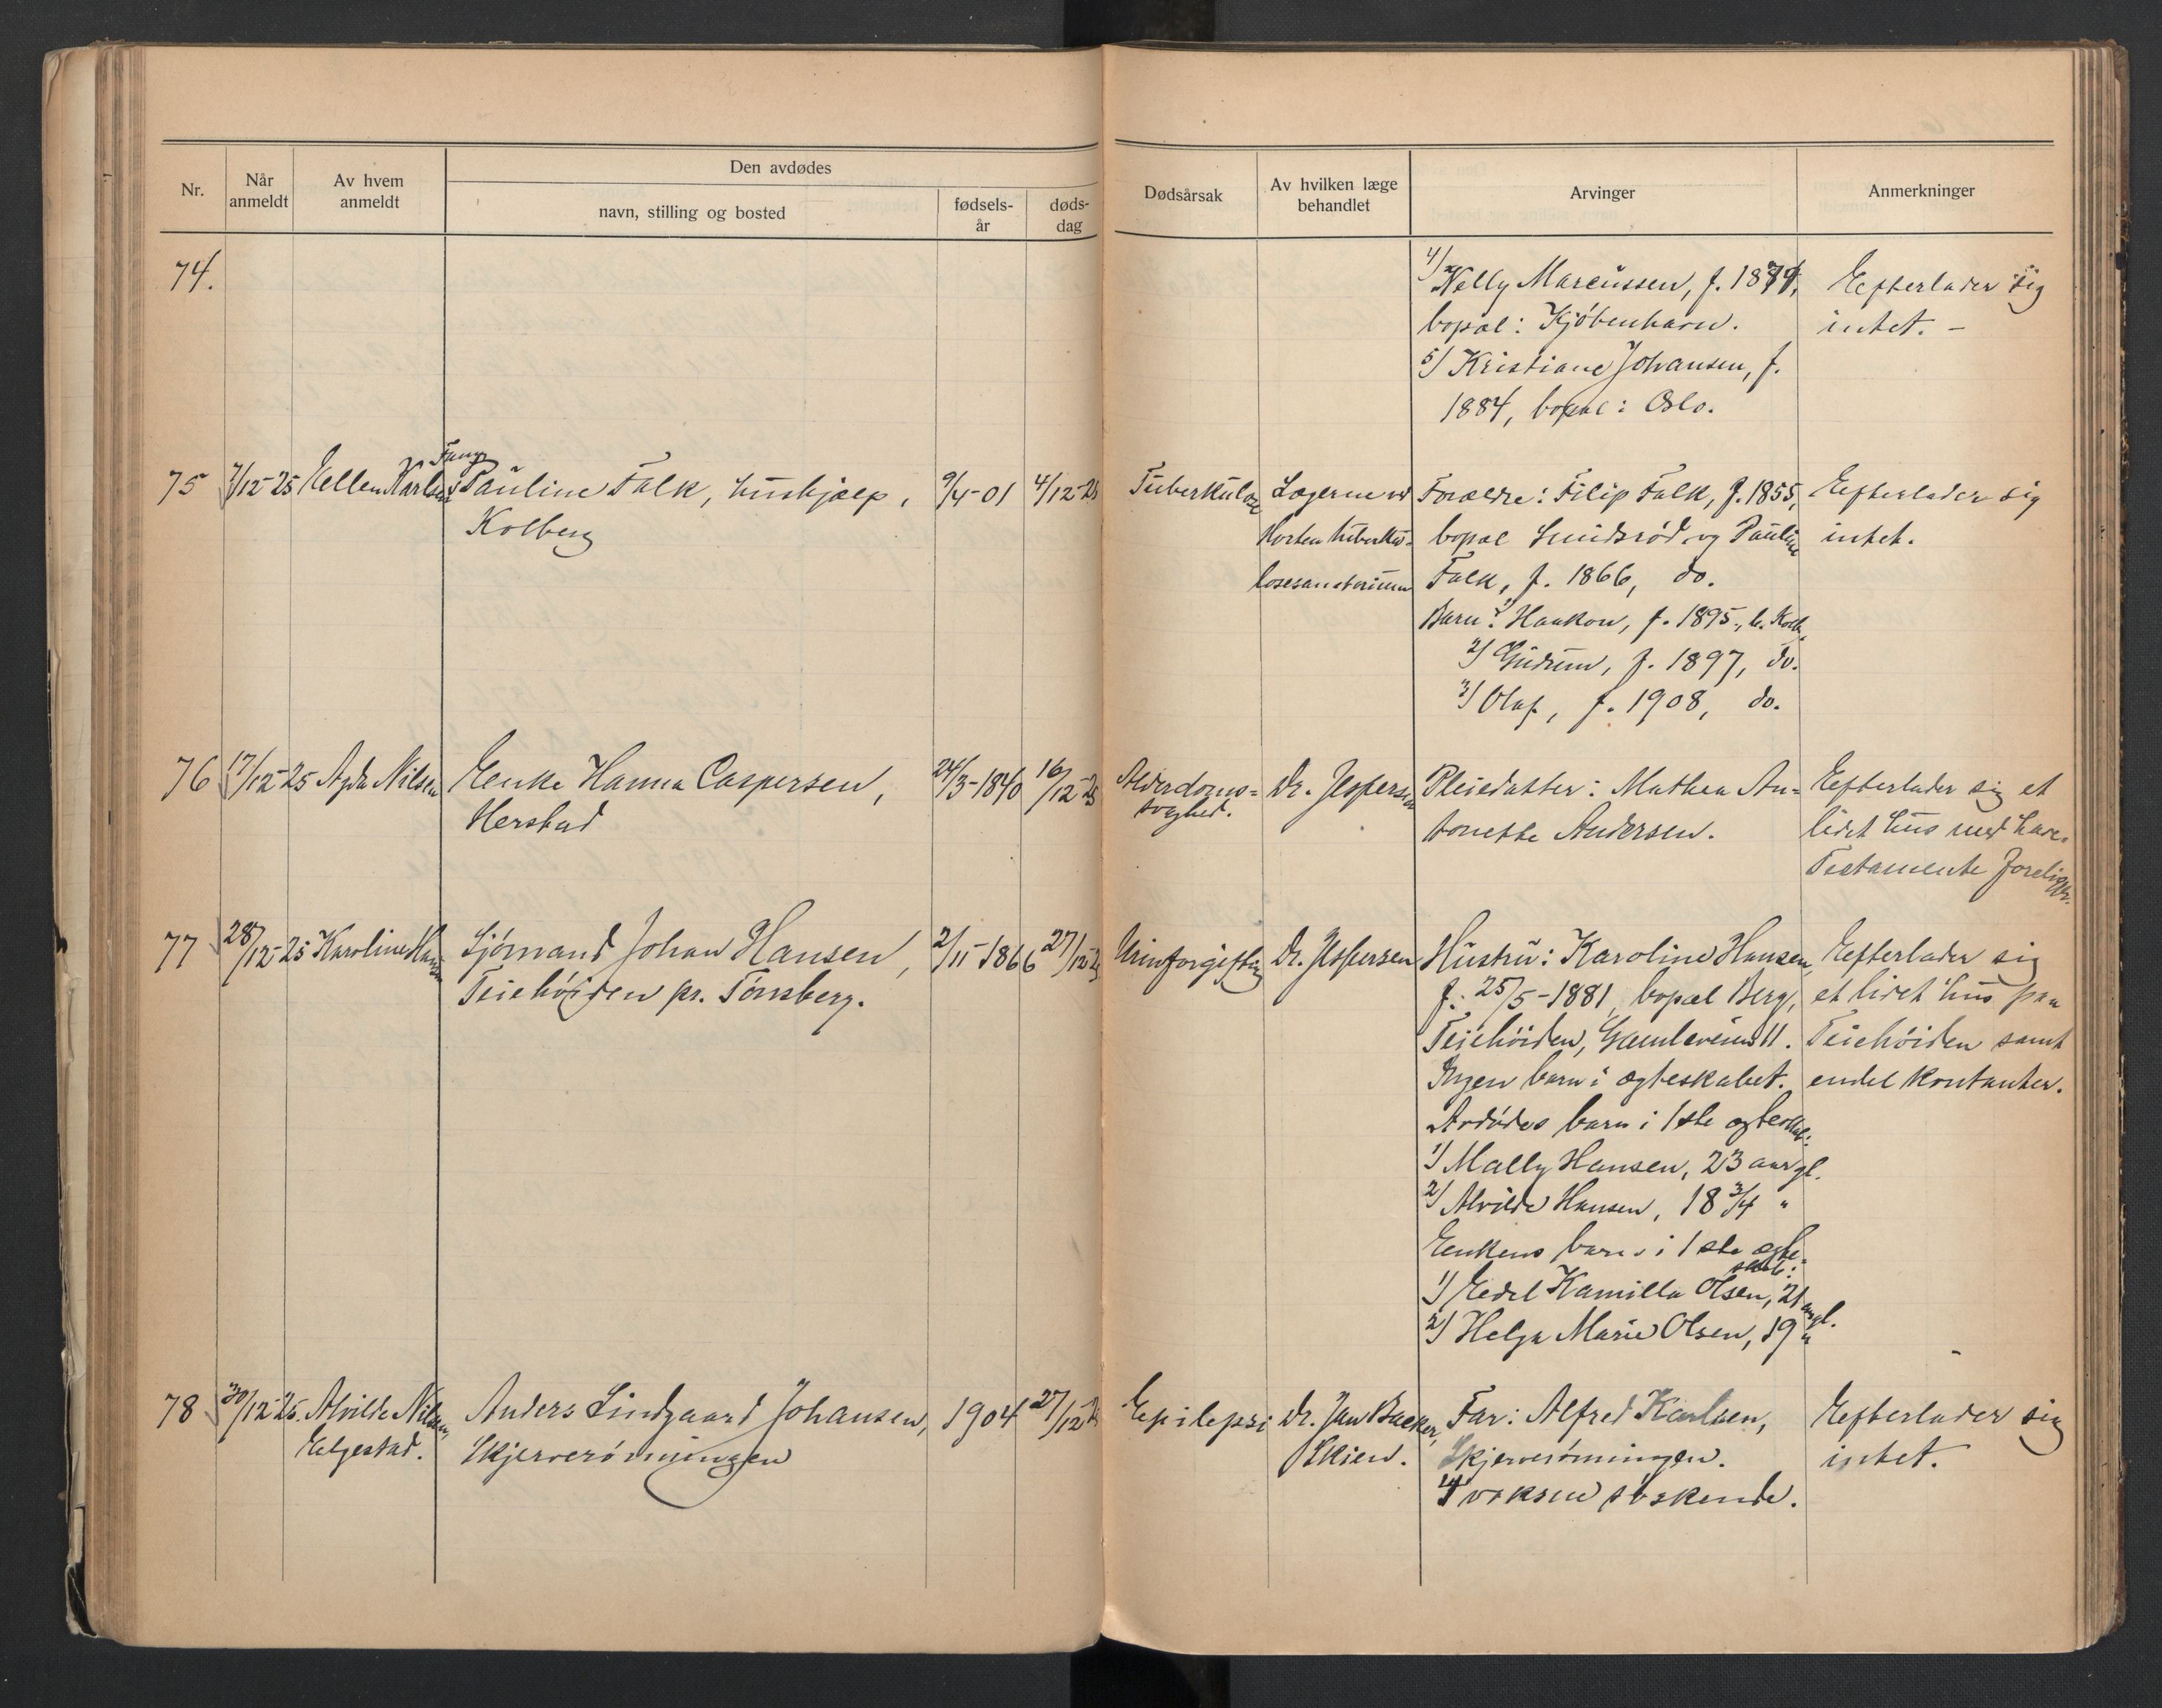 Nr.
Når anmeldt
Av hvem anmeldt
Den avdødes
navn, stilling og bosted
fødsels-år
døds-dag
Dødsårsak
Av hvilken læge behandlet
Arvinger
Anmerkninger
74.
4) Nelly Marcussen, f. 1879,
bopæl: Kjøbenhavn.
5) Kristiane Johansen, f.
1884, bopæl: Oslo.
Efterlader sig
intet. -
75
7/12-25
Ellen Karlsen
Pauline Falk, hushjælp,
Kolberg
9/4-01
4/12-25
Tuberkulose
Lægerne ved
Horten tuberku-
losesanatorium
Forældre: Filip Falk, f. 1855,
bopæl Smidsrød og Pauline
Falk, f. 1866, do.
Barn: 1) Haakon, f. 1895, b. Kolb.
2) Gudrun, f. 1897, do.
3) Olaf, f. 1908, do.
Efterlader sig
intet.
76
17/12-25
Agda Nilsen
Enke Hanna Caspersen,
Herstad
24/3-1840
16/12-25
Alderdoms=
svaghed.
Dr. Jespersen
Pleiedatter: Mathea An=
tonette Andersen.
Efterlader sig et
lidet hus med have.
Testamente foreligger.
77
28/12-25
Karoline Hansen
Sjømand Johan Hansen,
Teiehøiden pr. Tønsberg.
2/11-1866
27/12-25
Urinforgiftning
Dr. Jespersen
Hustru: Karoline Hansen,
f. 25/5-1881, bopæl Berg,
Teiehøiden, Gamleveien 11.
Ingen barn i ægteskabet.
Avdødes barn i 1ste ægteskab:
1) Mally Hansen, 23 aar gl.
2) Alvilde Hansen, 18 3/4 "
Enkens barn i 1ste ægte-
skab:
1) Edel Kamilla Olsen, 21 aar gl.
2) Helga Marie Olsen, 19 "
Efterlader sig
et lidet hus paa
Teiehøiden samt
endel kontanter.
78
30/12-25.
Alvilde Nilsen,
Elgestad.
Anders Lindgaard Johansen,
Skjerverømningen
1904
27/12-25
Epilepsi
Dr. Jan Backer,
Skien.
Far: Alfred Karlsen,
Skjerverømningen.
4 voksne søskende.
Efterlader sig
intet.